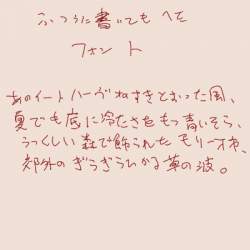 ふつうに書いても へた
フォント
あのイートハーヴォのすきとおった風、
夏でも底に冷たさをもつ青いそら、
うつくしい森で飾られたモリーオ市、
郊外のぎらぎらひかる草の波。